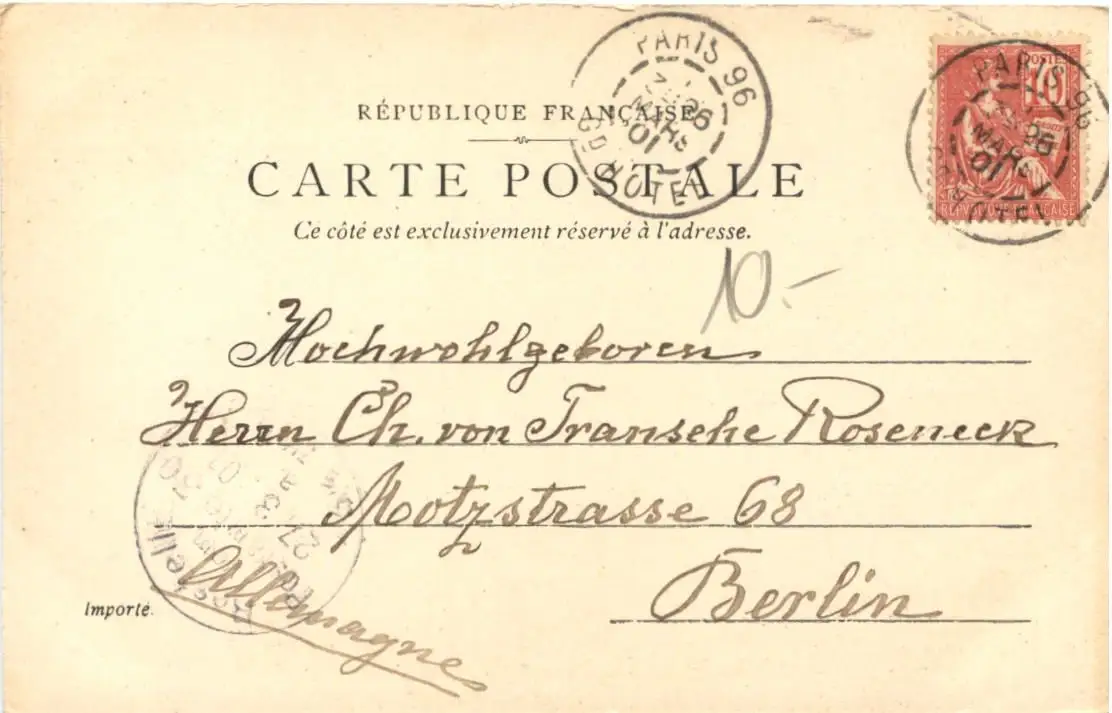 PARIS 96
26
MARS
01
GD HOTEL
POSTES
10
PARIS 96
26
MARS
01
HOTEL
RÉPUBLIQUE FRANÇAISE
RÉPUBLIQUE FRANÇAISE
CARTE POSTALE
Ce côté est exclusivement réservé à l'adresse.
10.-
Hochwohlgeboren
Herrn Ch. von Transehe Roseneck
Motzstrasse 68
Berlin
Allemagne
Importé.
27